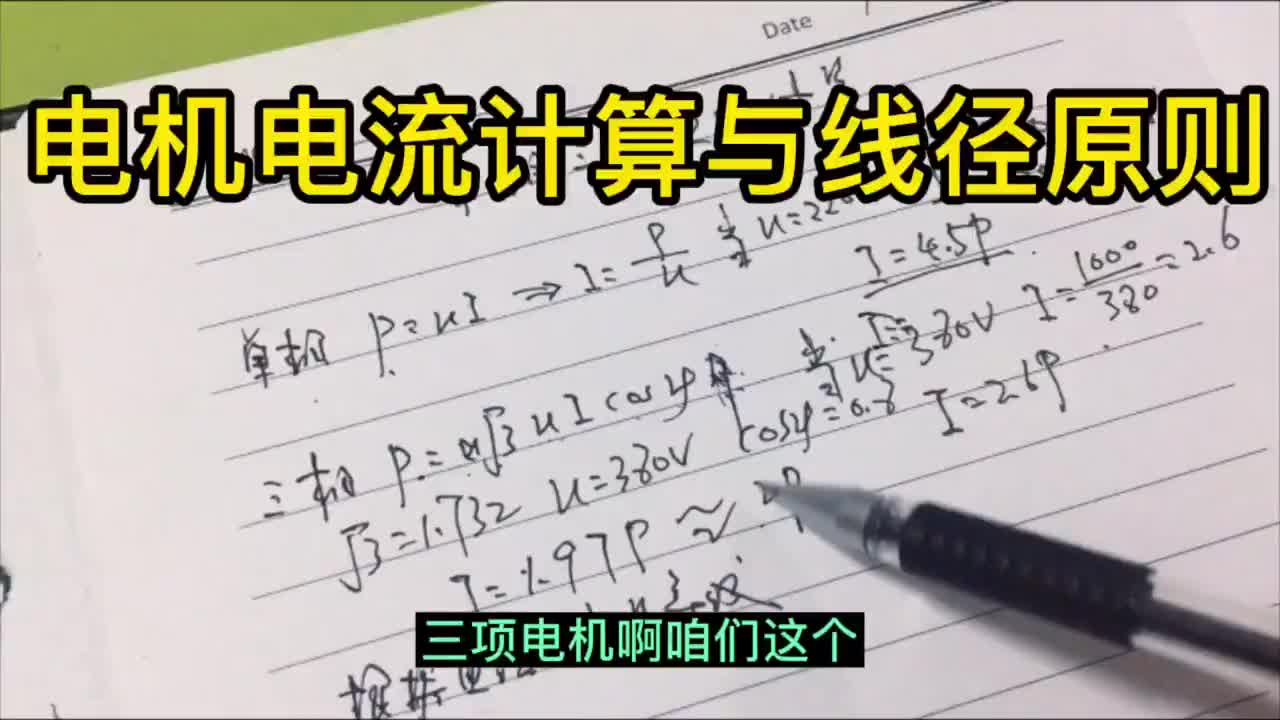 Date
电机电流计算与线径原则
单相 P=uI ⇒ I=P/u 当 u=220
I=4.5P
三相 P=√3 u I cosφ
当 u=380V I=1000/380=2.6
√3=1.732 u=380V cosφ=0.8 I=2.6P
I=1.97P≈2P
根据电
三项电机啊咱们这个